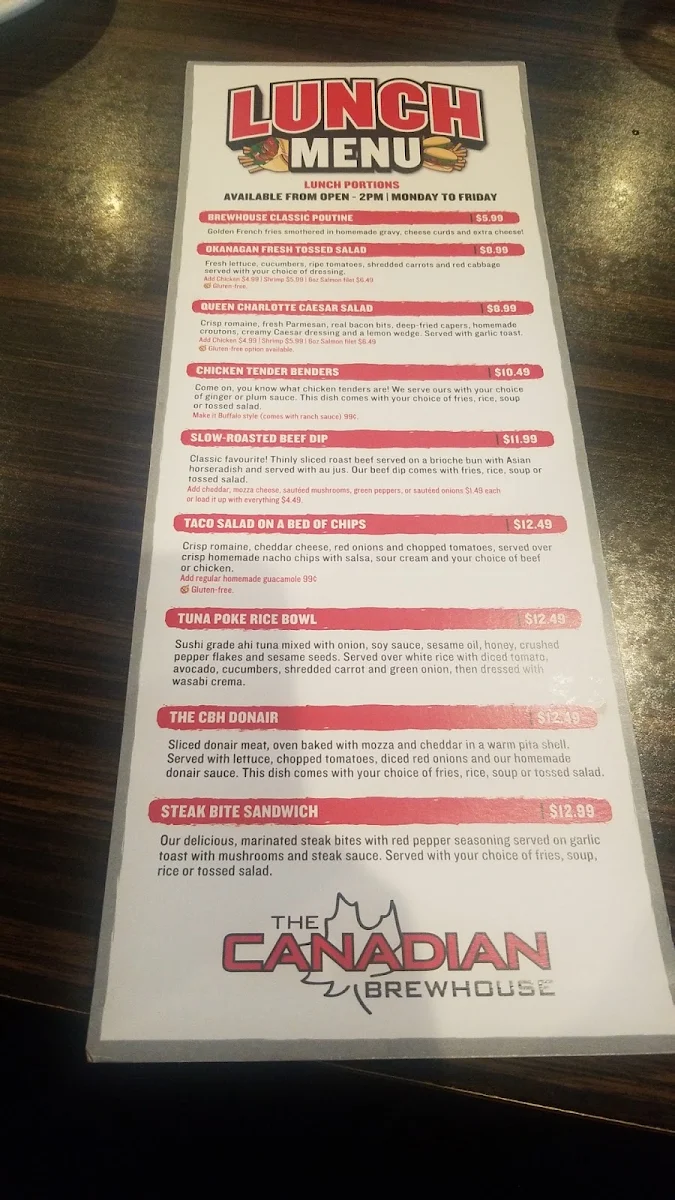 LUNCH
MENU
LUNCH PORTIONS
AVAILABLE FROM OPEN - 2PM | MONDAY TO FRIDAY
BREWHOUSE CLASSIC POUTINE | $5.99
Golden French fries smothered in homemade gravy, cheese curds and extra cheese!
OKANAGAN FRESH TOSSED SALAD
Fresh lettuce, cucumbers, ripe tomatoes, shredded carrots and red cabbage
served with your choice of dressing.
Add Chicken $4.99 | Shrimp $5.99 | 8oz Salmon filet $6.49
Gluten-free.
QUEEN CHARLOTTE CAESAR SALAD
Crisp romaine, fresh Parmesan, real bacon bits, deep-fried capers, homemade
croutons, creamy Caesar dressing and a lemon wedge. Served with garlic toast.
Add Chicken $4.99 | Shrimp $5.99 | 8oz Salmon filet $6.49
Gluten-free option available.
CHICKEN TENDER BENDERS | $10.49
Come on, you know what chicken tenders are! We serve ours with your choice
of ginger or plum sauce. This dish comes with your choice of fries, rice, soup
or tossed salad.
Make it Buffalo style (comes with ranch sauce) 99¢.
SLOW-ROASTED BEEF DIP | $11.99
Classic favourite! Thinly sliced roast beef served on a brioche bun with Asian
horseradish and served with au jus. Our beef dip comes with fries, rice, soup or
tossed salad.
Add cheddar, mozza cheese, sautéed mushrooms, green peppers, or sautéed onions $1.49 each
or load it up with everything $4.49.
TACO SALAD ON A BED OF CHIPS | $12.49
Crisp romaine, cheddar cheese, red onions and chopped tomatoes, served over
crisp homemade nacho chips with salsa, sour cream and your choice of beef
or chicken.
Add regular homemade guacamole 99¢
Gluten-free.
TUNA POKE RICE BOWL | $12.49
Sushi grade ahi tuna mixed with onion, soy sauce, sesame oil, honey, crushed
pepper flakes and sesame seeds. Served over white rice with diced tomato,
avocado, cucumbers, shredded carrot and green onion, then dressed with
wasabi crema.
THE CBH DONAIR | $12.49
Sliced donair meat, oven baked with mozza and cheddar in a warm pita shell.
Served with lettuce, chopped tomatoes, diced red onions and our homemade
donair sauce. This dish comes with your choice of fries, rice, soup or tossed salad.
STEAK BITE SANDWICH | $12.99
Our delicious, marinated steak bites with red pepper seasoning served on garlic
toast with mushrooms and steak sauce. Served with your choice of fries, soup,
rice or tossed salad.
THE
CANADIAN
BREWHOUSE